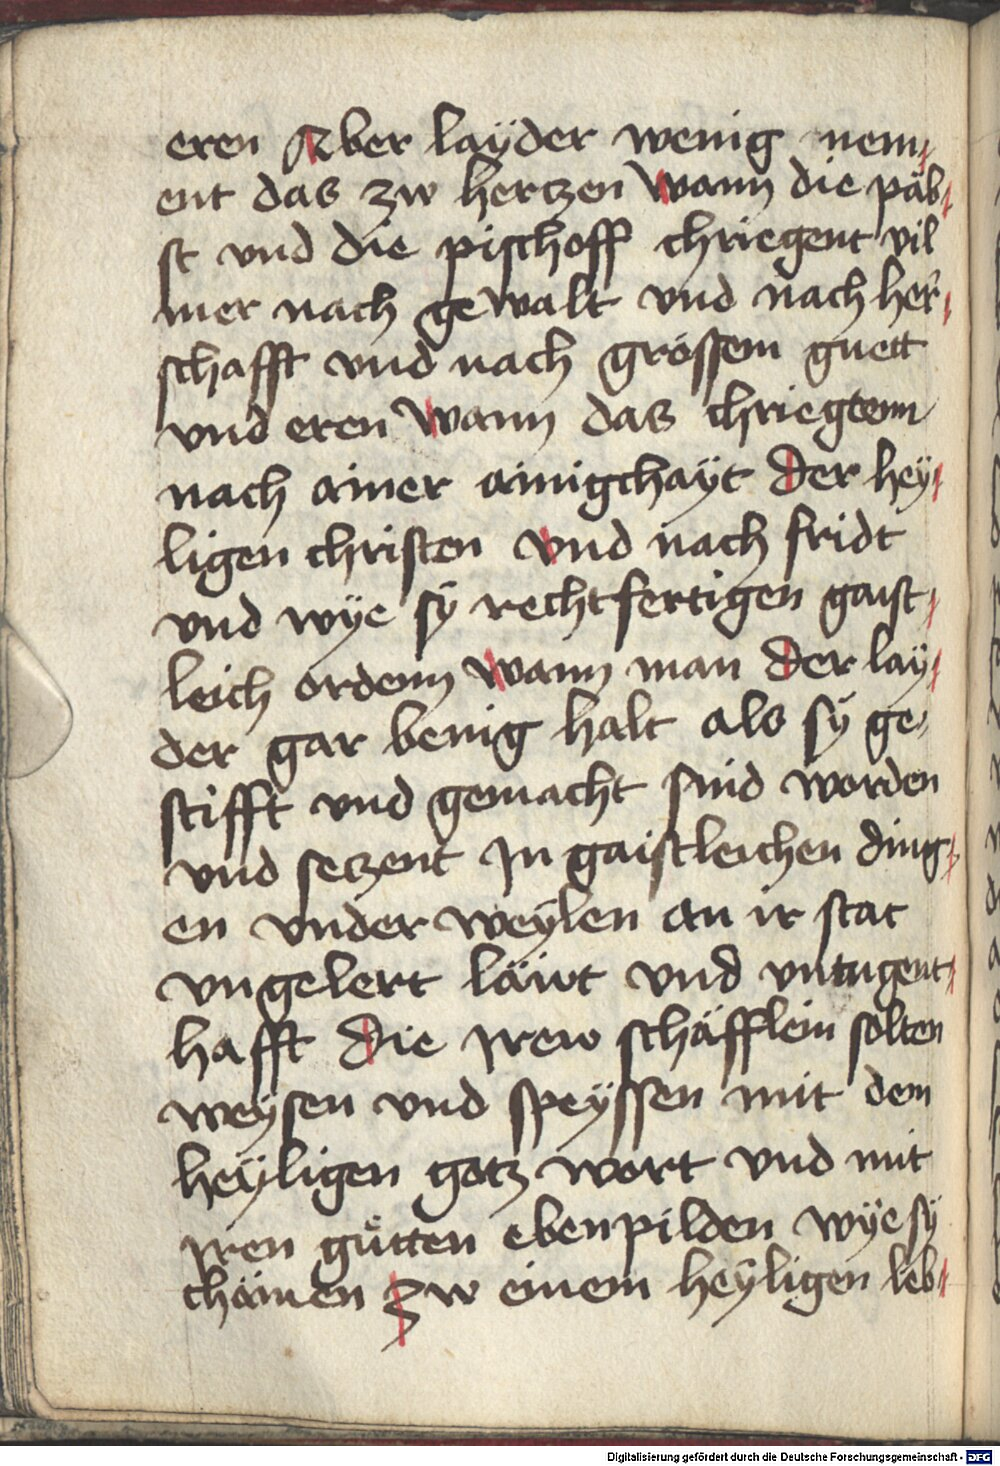 eren Aber layder wenig nem-
ent das zw hertzen wann die päb-
st vnd die pischoff chriegent vil
mer nach gewalt vnd nach her-
schafft vnd nach grössem guett
vnd eren wann das chriegtenn
nach ainer ainigchaÿt Der heÿ-
ligen christen vnd nach fridt
vnd wÿe sÿ rechtfertigen gaist-
leich ordenn wann man Der laÿ-
der gar benig halt als sÿ ge-
stifft vnd gemacht sind worden
vnd setzent In gaistleichen ding-
en vnder weÿlen an ir stat
vngelert läwt vnd vntugent-
hafft Die Irew schäfflein solten
weÿsen vnd speÿssen mit dem
heÿligen gotz wort vnd mit
Iren gůtten ebenpilden wÿe sÿ
chämen zw einem heÿligen leb-
Digitalisierung gefördert durch die Deutsche Forschungsgemeinschaft - DFG